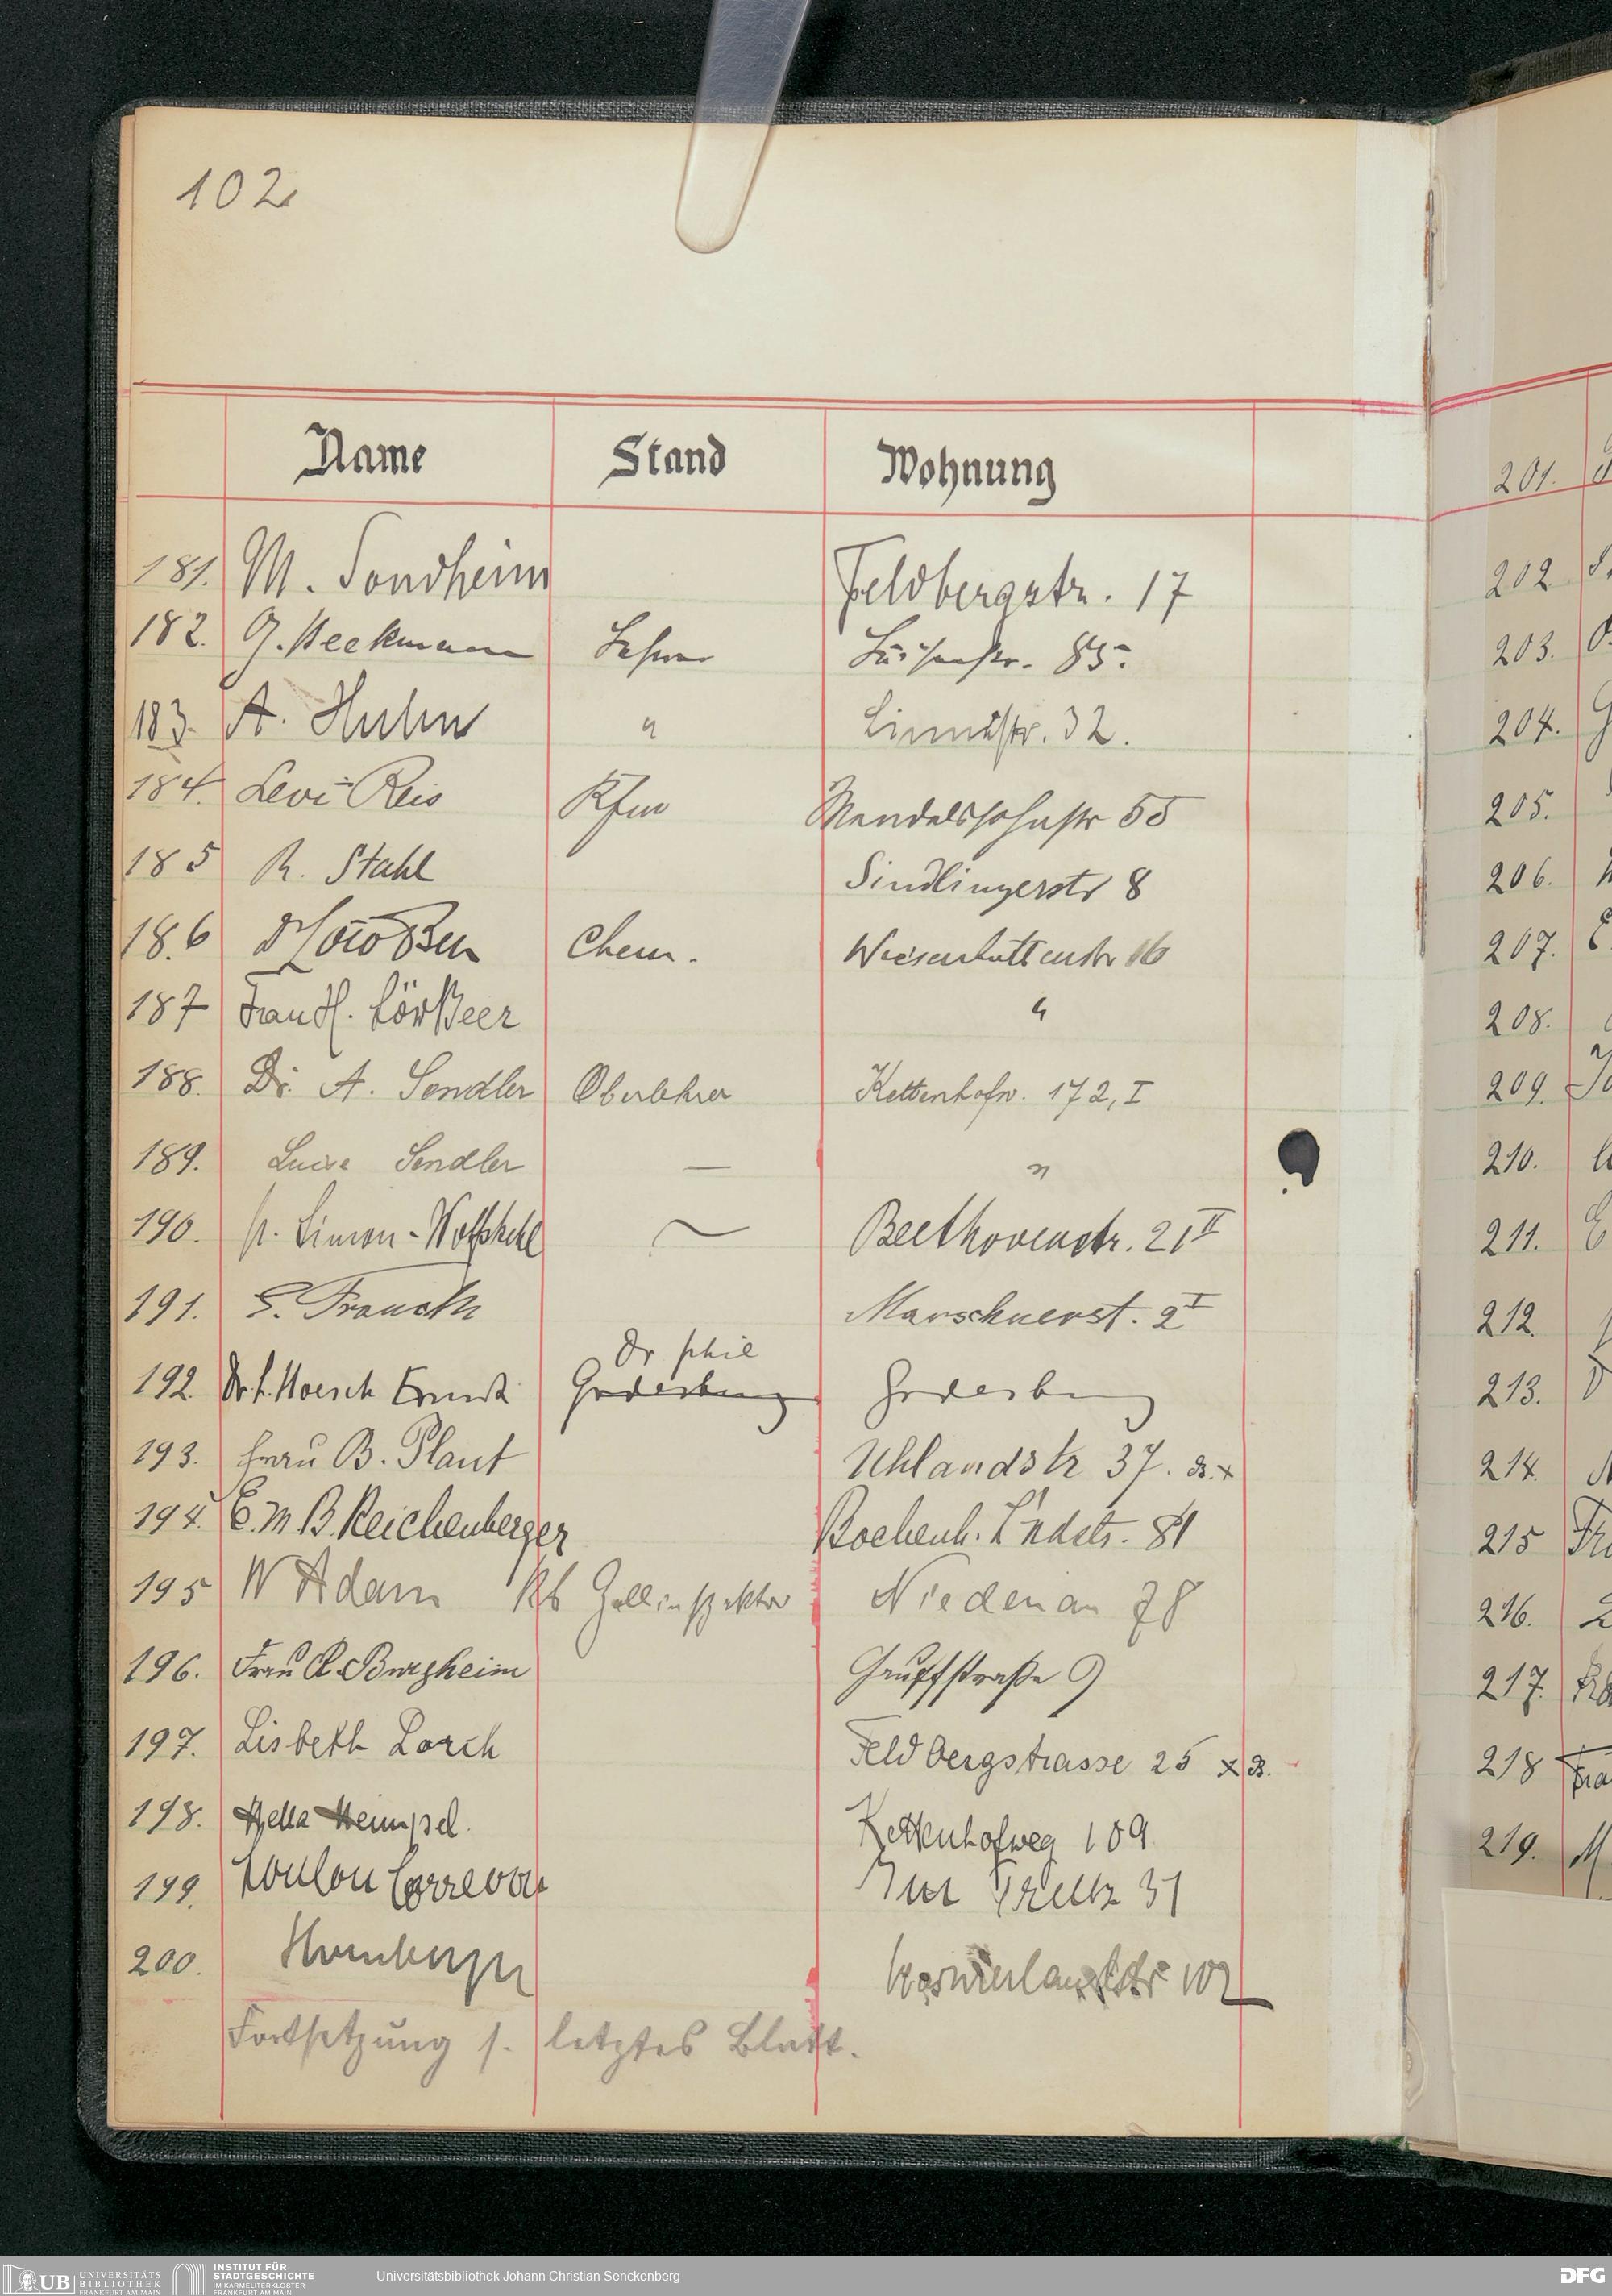 102
Name Stand Wohnung
181. M. Sondheim Feldbergstr. 17
182. G. Heckmann Lehrer Luisenstr. 85.
183. A. Huhn " Linnéstr. 32.
184. Levi-Reis Kfm Mendelssohnstr 55
185 R. Stahl Sindlingerstr 8
186 Chem. Wiesenhüttenstr 16
187 "
188. Dr. A. Sendler Oberlehrer Kettenhofw. 172, I
189. Luise Sendler — "
190. Simon-Wolfskehl Beethovenstr. 21 II
191. Marschnerst. 2 I
Dr phil
192. Dr. Hoesch Ernst Godesberg Godesberg
193. Frau B. Plaut Uhlandstr 37.
194. E. M. B. Reichenberger Bockenh. Lndstr. 81
195 W Adam Zollinspektor Niedenau 78
196. Frau R. Burgheim Hauffstraße 9
197. Lisbeth Lorch Feldbergstrasse 25
198. Hella Heimpel. Kettenhofweg 109
199. Toulon Correvon Im Trutz 31
200. Homburger 102
Fortsetzung s. letztes Blatt.
201.
202
203.
204.
205.
206.
207.
208.
209.
210.
211.
212.
213.
214.
215
216.
217.
218
219.
UB UNIVERSITÄTS
BIBLIOTHEK
FRANKFURT AM MAIN
INSTITUT FÜR
STADTGESCHICHTE
IM KARMELITERKLOSTER
FRANKFURT AM MAIN
Universitätsbibliothek Johann Christian Senckenberg
DFG